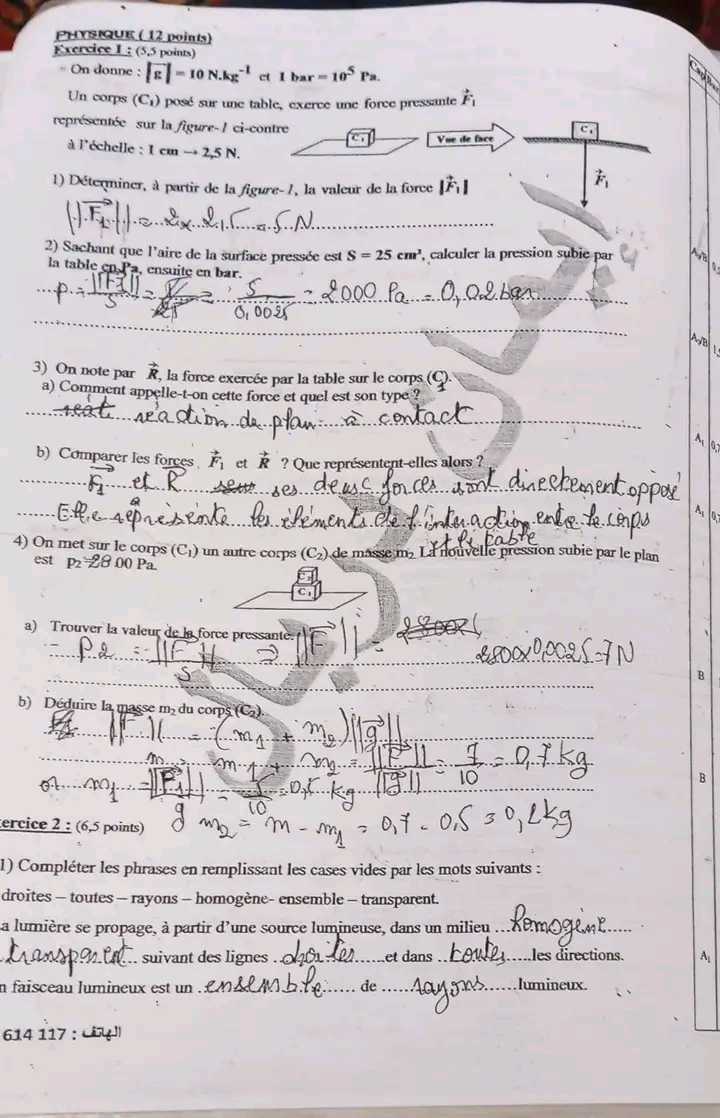 PHYSIQUE ( 12 points)
Exercice 1 : (5,5 points)
- On donne : ||g|| = 10 N.kg⁻¹ et 1 bar = 10⁵ Pa.
Un corps (C₁) posé sur une table, exerce une force pressante F⃗₁
représentée sur la figure-1 ci-contre
à l'échelle : 1 cm → 2,5 N.
C₁
Vue de face
C₁
F⃗₁
1) Déterminer, à partir de la figure-1, la valeur de la force ||F⃗₁||
||F⃗₁|| = 2 x 2,5 = 5 N
2) Sachant que l'aire de la surface pressée est S = 25 cm², calculer la pression subie par
la table en Pa, ensuite en bar.
P = ||F⃗₁|| / S = 5 / 0,0025 = 2000 Pa = 0,02 bar
3) On note par R⃗, la force exercée par la table sur le corps (C₁).
a) Comment appelle-t-on cette force et quel est son type ?
réaction de plan à contact
b) Comparer les forces F⃗₁ et R⃗ ? Que représentent-elles alors ?
F⃗₁ et R⃗ ses deusc forces sont directement opposé
Elle représente les éléments de l'interaction entre le corps
et le table
4) On met sur le corps (C₁) un autre corps (C₂) de masse m₂ La nouvelle pression subie par le plan
est p₂=2800 Pa.
C₂
C₁
a) Trouver la valeur de la force pressante.
P2 = ||F⃗|| / S ⇒ ||F⃗|| = 2800x0,0025=7N
b) Déduire la masse m₂ du corps (C₂).
||F⃗|| = (m₁ + m₂) ||g⃗||
m = m₁ + m₂ = ||F⃗|| / ||g⃗|| = 7 / 10 = 0,7 kg
or m₁ = ||F⃗₁|| / g = 5 / 10 = 0,5 kg
m₂ = m - m₁ = 0,7 - 0,5 = 0,2 kg
ercice 2 : (6,5 points)
1) Compléter les phrases en remplissant les cases vides par les mots suivants :
droites – toutes – rayons – homogène- ensemble – transparent.
a lumière se propage, à partir d'une source lumineuse, dans un milieu homogène
transparent suivant des lignes droites et dans toutes les directions.
n faisceau lumineux est un ensemble de rayons lumineux.
614 117 : الهاتف
A₁
B
B
A₁